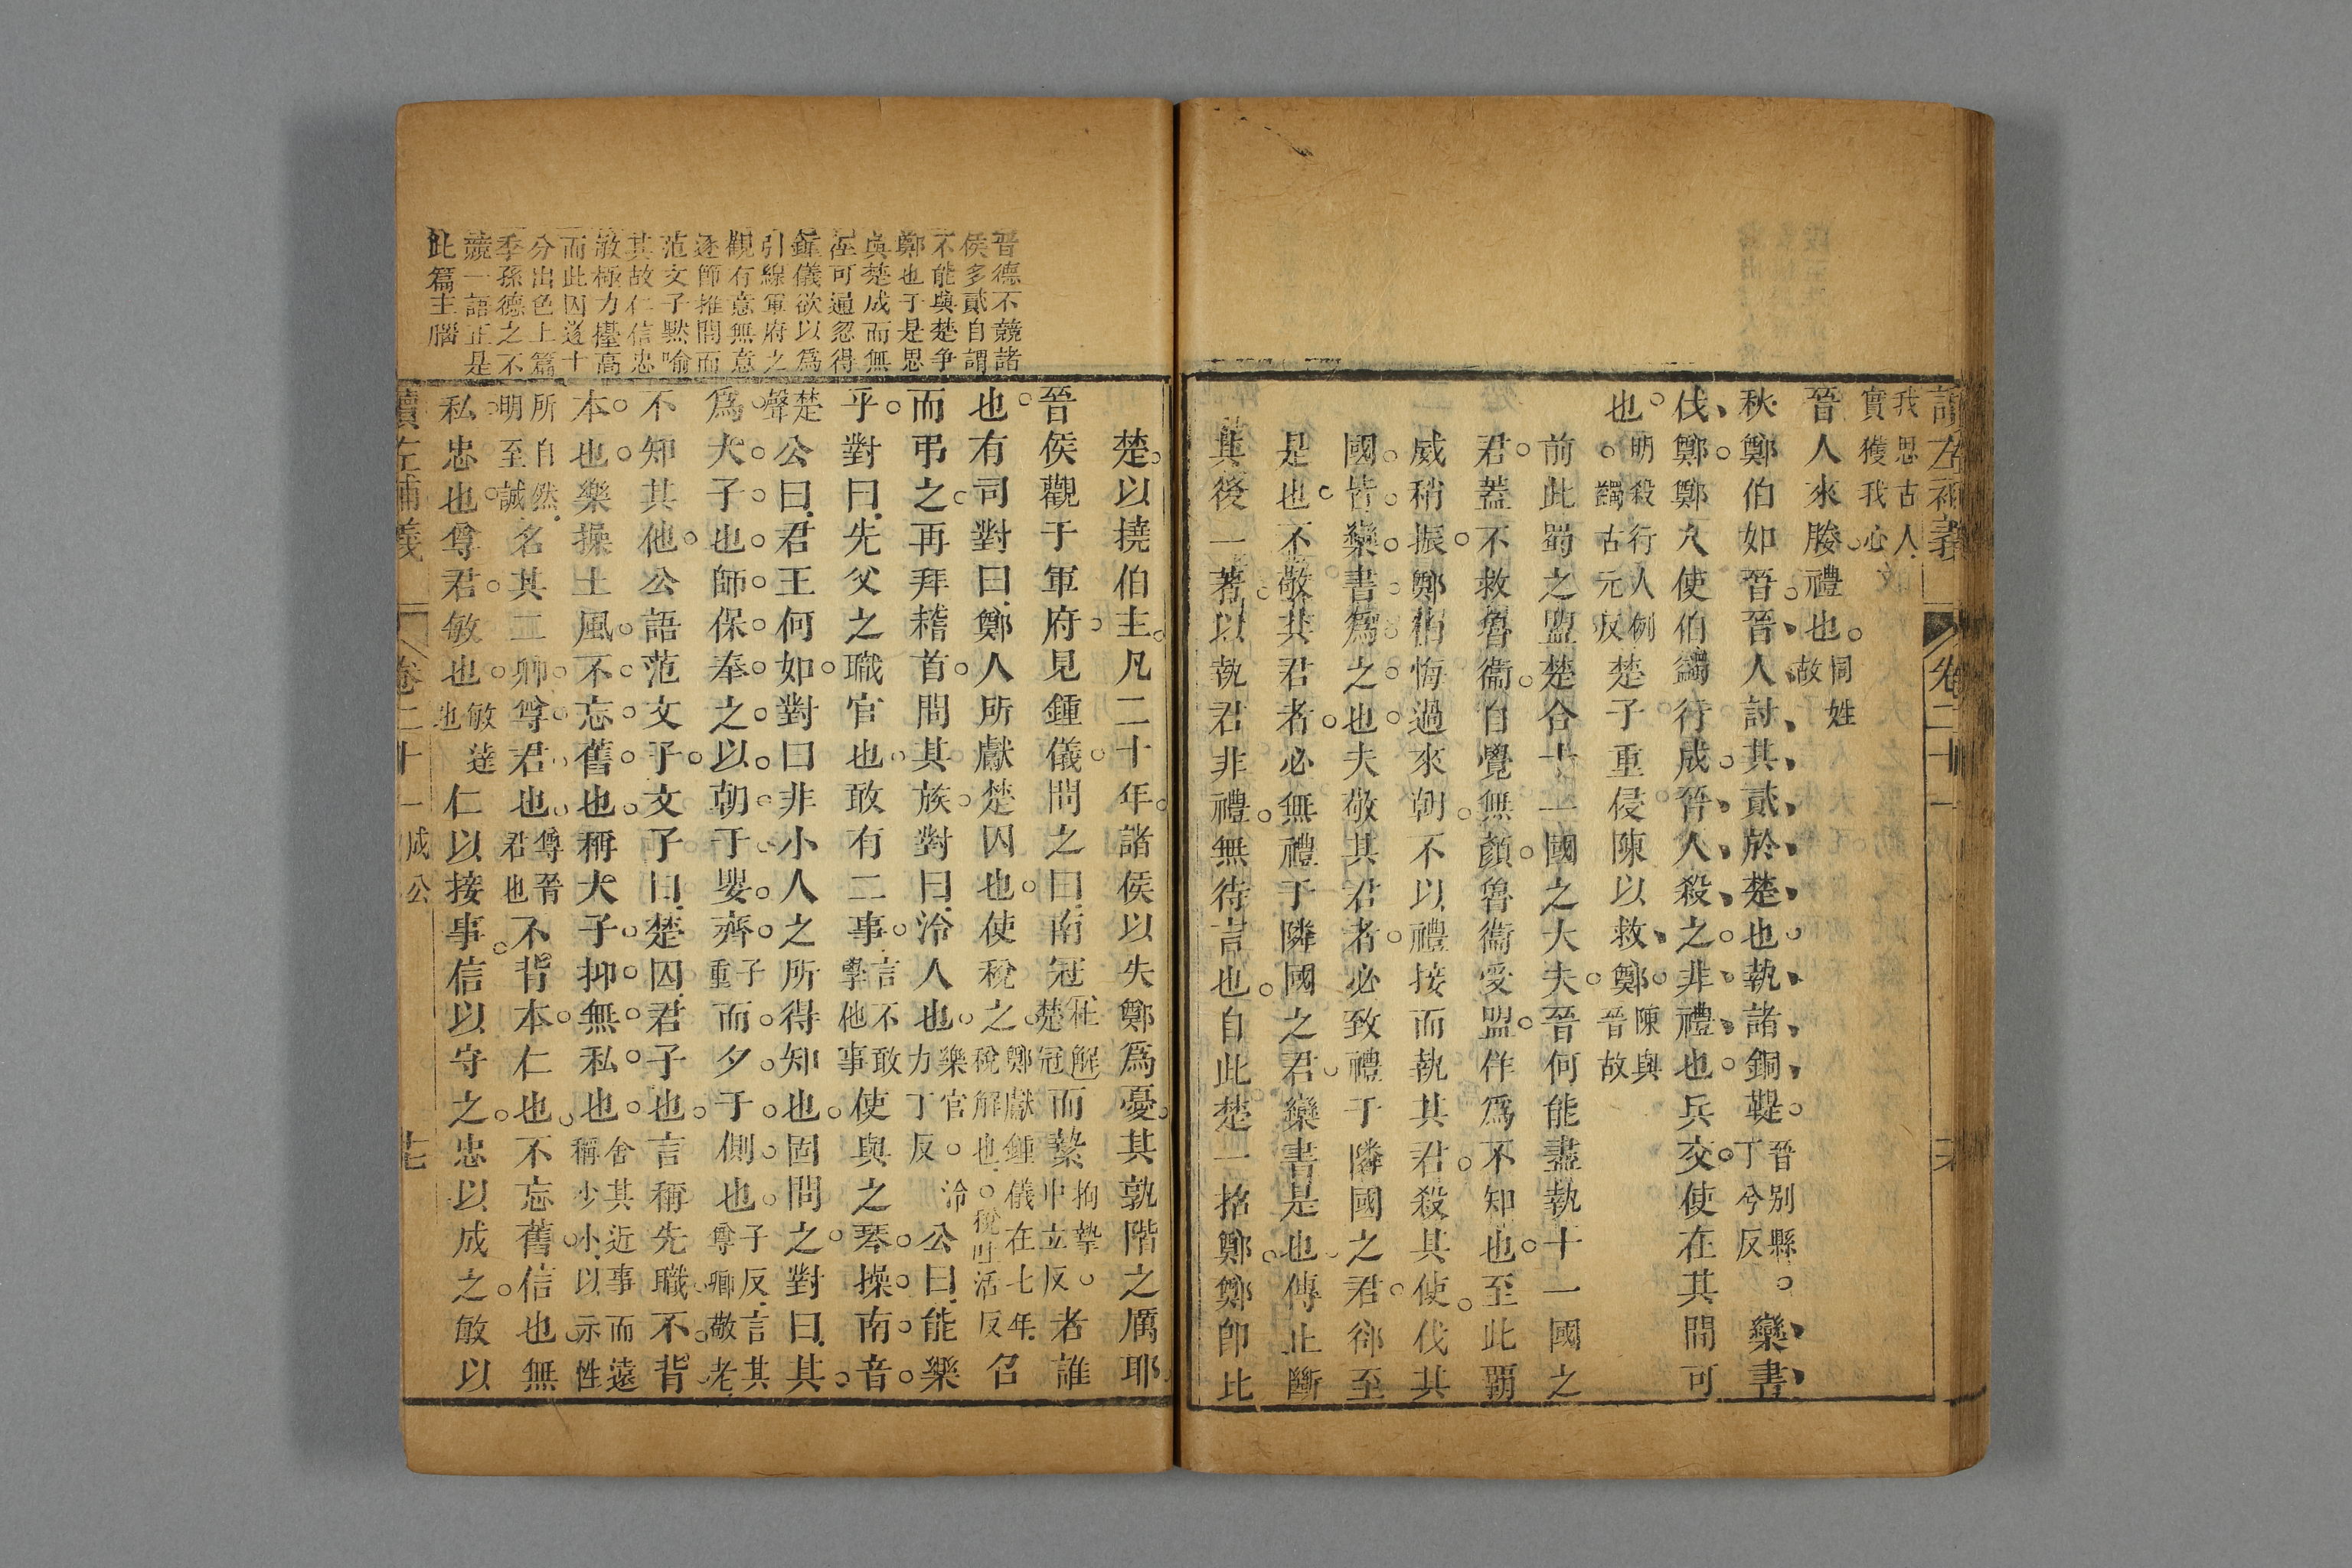 讀左補義 卷二十一
我思古人
實獲我心
晉人來媵禮也同姓故
秋鄭伯如晉晉人討其貳於楚也執諸銅鞮晉別縣丁兮反欒書
伐鄭鄭人使伯蠲行成晉人殺之非禮也兵交使在其間可
也明殺行人例蠲古元反楚子重侵陳以救鄭陳與晉故
前此蜀之盟楚合十一國之大夫晉何能盡執十一國之
君蓋不救魯衞自覺無顏魯衞受盟佯爲不知也至此覇
威稍振鄭伯悔過來朝不以禮接而執其君殺其使伐其
國皆欒書爲之也夫敬其君者必致禮于隣國之君郤至
是也不敬其君者必無禮于隣國之君欒書是也傳止斷
其後一著以執君非禮無待言也自此楚一招鄭鄭卽比
楚以撓伯主凡二十年諸侯以失鄭爲憂其孰階之厲耶
晉侯觀于軍府見鍾儀問之曰南冠杜解楚冠而縶拘執中立反者誰
也有司對曰鄭人所獻楚囚也使稅之鄭獻鍾儀在七年稅解也稅吐活反召
而弔之再拜稽首問其族對曰泠人也樂官泠力丁反公曰能樂
乎對曰先父之職官也敢有二事言不敢學他事使與之琴操南音
楚聲公曰君王何如對曰非小人之所得知也固問之對曰其
爲大子也師保奉之以朝于嬰齊子重而夕于側也子反言其尊卿敬老
不知其他公語范文子文子曰楚囚君子也言稱先職不背
本也樂操土風不忘舊也稱大子抑無私也舍其近事而遠稱少小以示性
所自然明至誠名其二卿尊君也尊晉君也不背本仁也不忘舊信也無
私忠也尊君敏也敏達也仁以接事信以守之忠以成之敏以
讀左補義 卷二十一 成公 十七
晉德不競諸
侯多貳自謂
不能與楚爭
鄭也于是思
與楚成而無
徑可通忽得
鍾儀欲以爲
引線軍府之
觀有意無意
逐師推問而
范文子默喻
其故仁信忠
敏極力擡高
而此囚遂十
分出色上篇
季孫德之不
競一語正是
此篇主腦